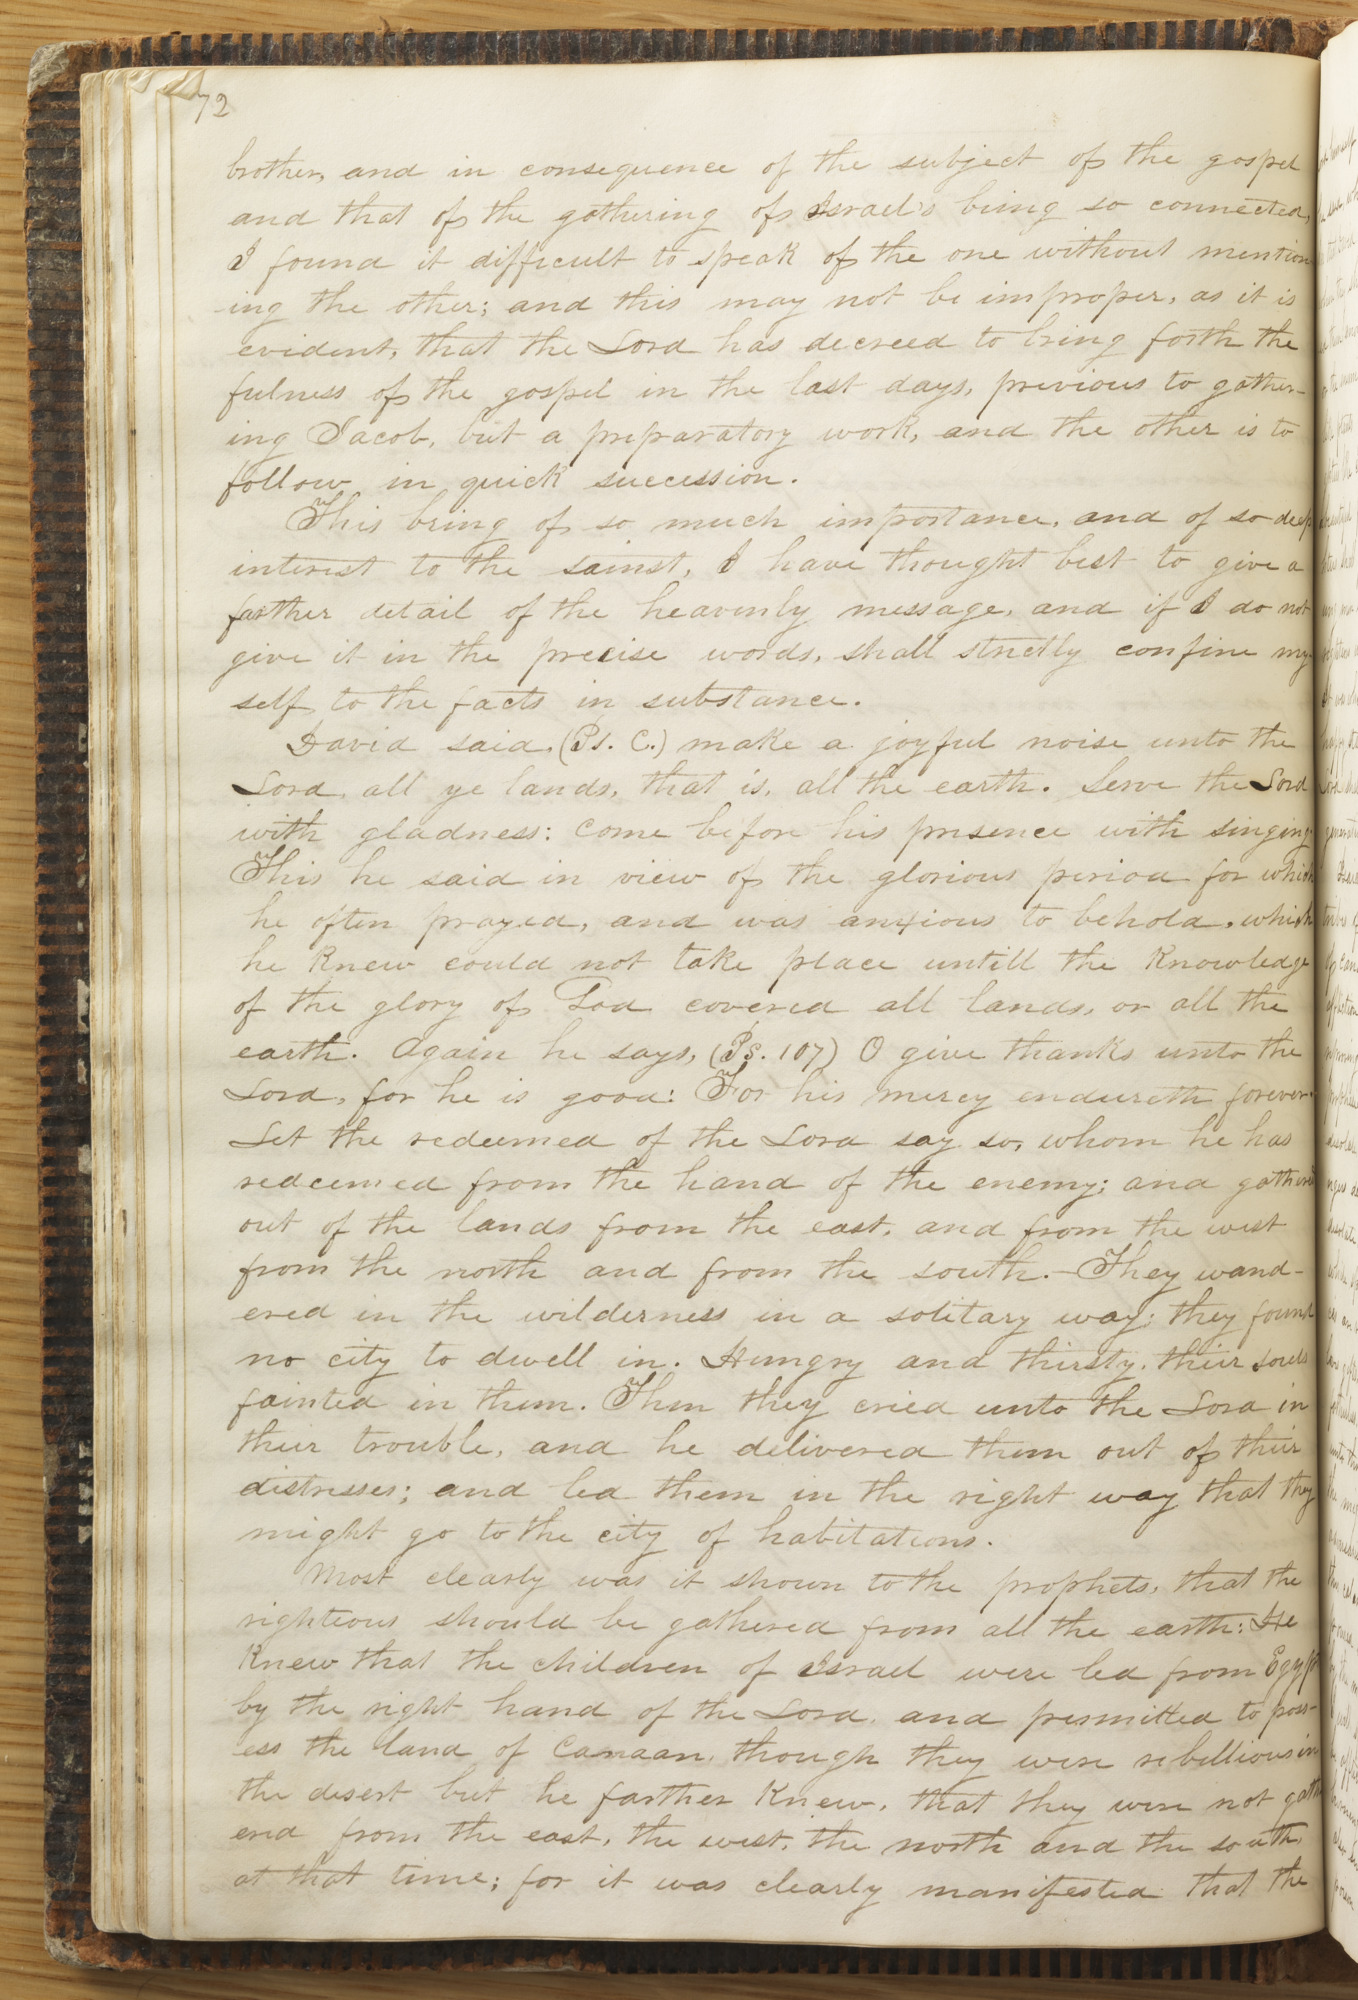 72
brother, and in consequence of the subject of the gospel
and that of the gathering of Israel's being so connected,
I found it difficult to speak of the one without mention
ing the other; and this may not be improper, as it is
evident, that the Lord has decreed to bring forth the
fulness of the gospel in the last days, previous to gather-
ing Jacob, but a preparatory work, and the other is to
follow in quick succession.
This being of so much importance, and of so deep
interest to the sainst, I have thought best to give a
farther detail of the heavenly message, and if I do not
give it in the precise words, shall strictly confine my
self to the facts in substance.
David said, (Ps. C.) make a joyful noise unto the
Lord, all ye lands, that is, all the earth. Serve the Lord
with gladness: come before his presence with singing.
This he said in view of the glorious period for which
he often prayed, and was anxious to behold, which
he knew could not take place untill the knowledge
of the glory of God covered all lands, or all the
earth. Again he says, (Ps. 107) O give thanks unto the
Lord, for he is good: For his mercy endureth forever.
Let the redeemed of the Lord say so, whom he has
redeemed from the hand of the enemy; and gathered
out of the lands from the east, and from the west
from the north and from the south.- They wand-
ered in the wilderness in a solitary way; they found
no city to dwell in. Hungry and thirsty, their souls
fainted in them. Then they cried unto the Lord in
their trouble, and he delivered them out of their
distresses; and led them in the right way that they
might go to the city of habitations.
Most clearly was it shown to the prophets, that the
righteous should be gathered from all the earth: He
knew that the children of Israel were led from Egypt
by the right hand of the Lord, and permitted to poss-
ess the land of Canaan, though they were rebellious in
the desert but he farther knew, that they were not gath
ered from the east, the west, the north and the south,
at that time; for it was clearly manifested that the